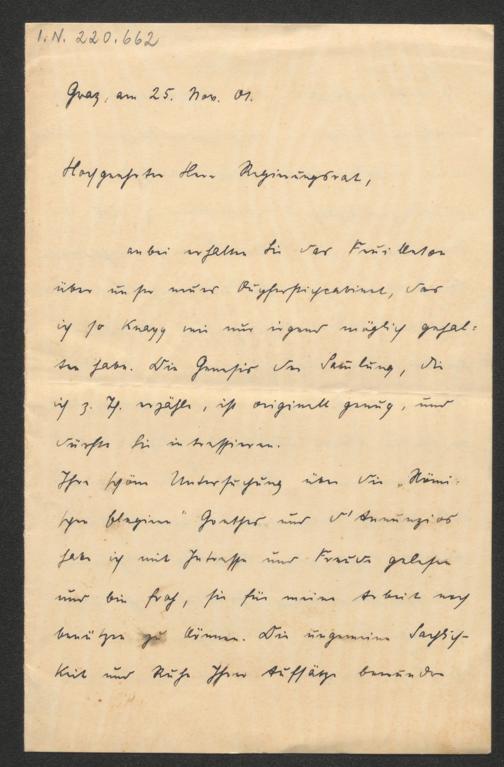 I.N. 220.662
Graz, am 25. Nov. 01.
Hochgeehrter Herr Regierungsrat,
anbei erhalten Sie das Feuilleton
über unser neues Kupferstichcabinet, das
ich so knapp wie nur irgend möglich gehal-
ten habe. Die Genesis der Samlung, die
ich z. Th. erzähle, ist originell genug, und
dürfte Sie interessieren.
Ihre schöne Untersuchung über die „Römi-
schen Elegieen" Goethes und d'Annunzios
habe ich mit Interesse und Freude gelesen
und bin froh, sie für meine Arbeit noch
benützen zu können. Die ungemeine Sachlich-
keit und Ruhe Ihrer Aufsätze bewundre